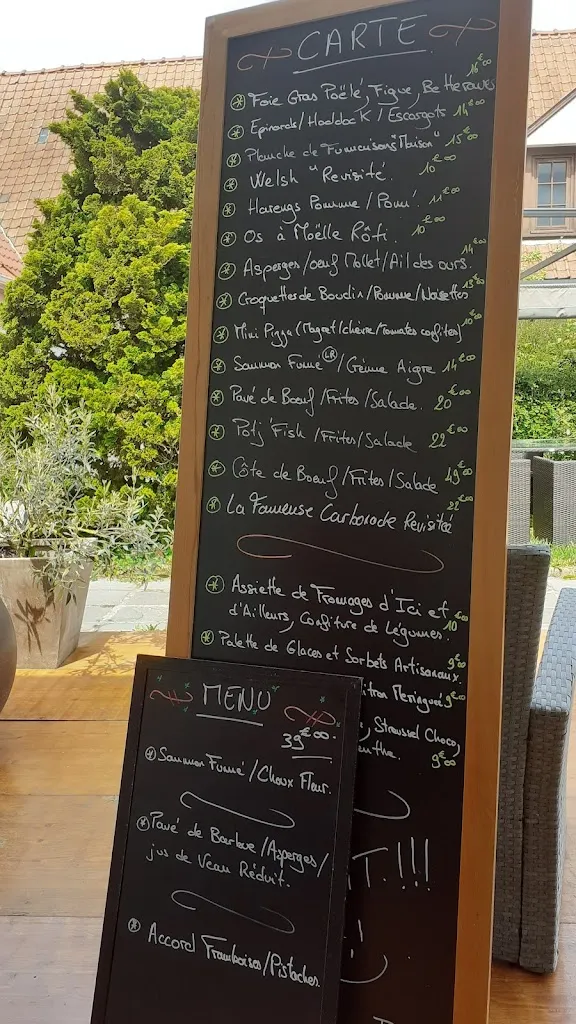 CARTE
Foie Gras Poëlé, Figue, Betteraves 16€00
Epinards/Haddock/Escargots 14€00
Planche de "Fumaisons" Maison" 15€00
Welsh "Revisité. 10€00
Harengs Pomme/Pom'. 11€00
Os à Moëlle Rôti. 10€00
Asperges/oeuf Mollet/Ail des ours. 14€00
Croquettes de Boudin/Pomme/Noisettes 13€00
Mini Pizza (Magret/chèvre/tomates confites) 10€00
Saumon Fumé LR/Crème Aigre 14€00
Pavé de Boeuf/Frites/Salade. 20€00
Potj'Fish/Frites/Salade 22€00
Côte de Boeuf/Frites/Salade 49€00
La Fameuse Carbonade Revisitée 22€00
Assiette de Fromages d'Ici et
d'Ailleurs, Confiture de Légumes. 10€00
Palette de Glaces et Sorbets Artisanaux. 9€00
itron Meringué 9€00
, Streussel Choco,
enthe. 9€00
T.!!!
!
MENU
39€00.
Saumon Fumé/Choux Fleur.
Pavé de Barbue/Asperges/
jus de Veau Réduit.
Accord Framboises/Pistaches